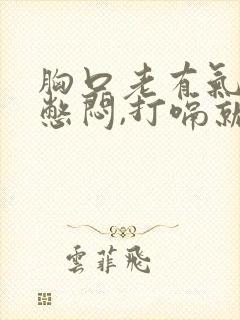 胸口老有氣
憋悶,打嗝就
雲菲飛